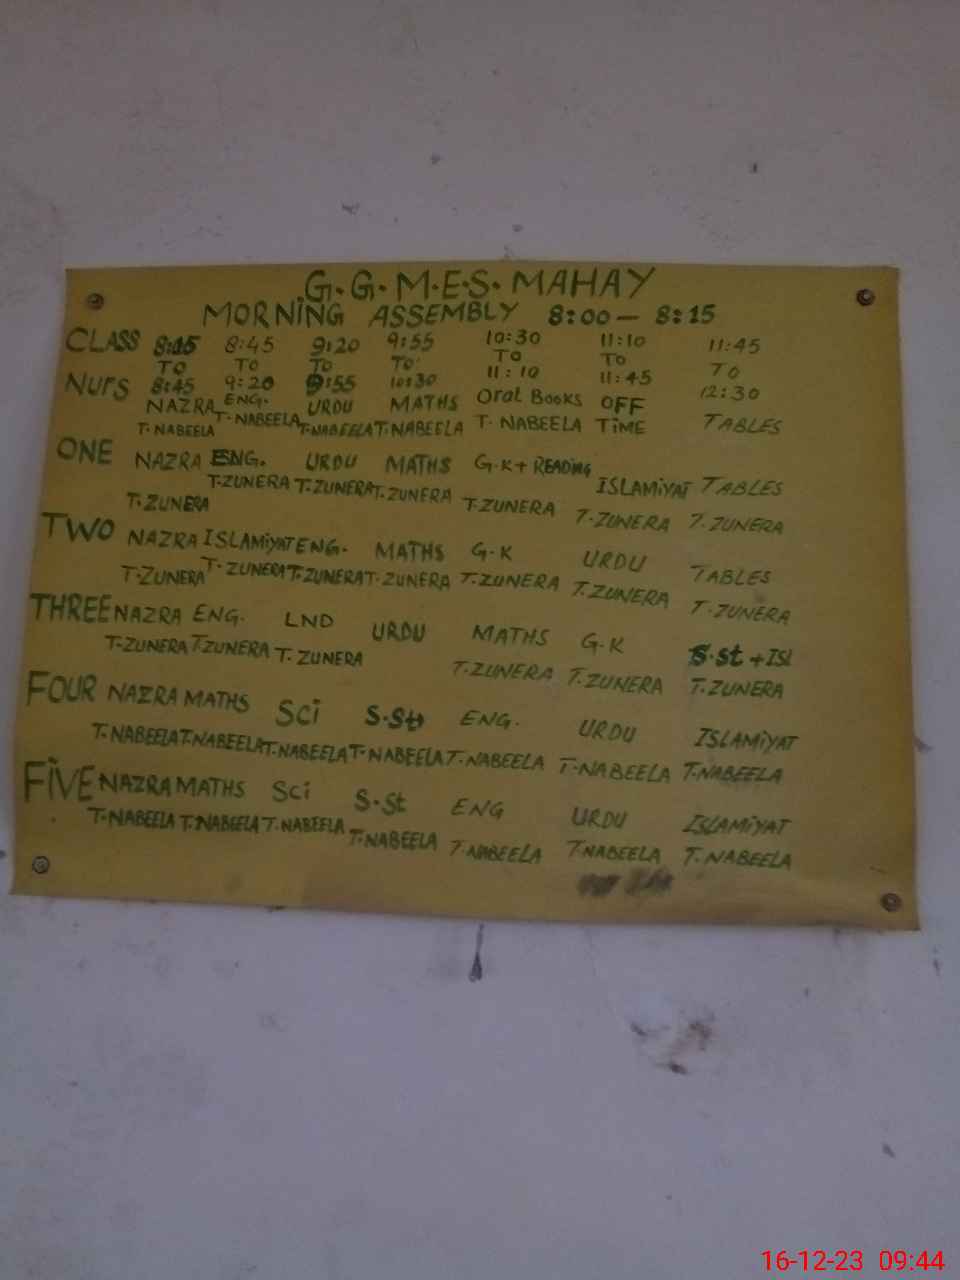 G.G.M.E.S. MAHAY
MORNING ASSEMBLY 8:00 — 8:15
CLASS 8:15 8:45 9:20 9:55 10:30 11:10 11:45
TO TO TO TO TO TO TO
8:45 9:20 9:55 10:30 11:10 11:45 12:30
Nurs NAZRA ENG. URDU MATHS Oral Books OFF TABLES
T. NABEELA T. NABEELA T. NABEELA T. NABEELA T. NABEELA TIME
ONE NAZRA ENG. URDU MATHS G.K + READING ISLAMIYAT TABLES
T. ZUNERA T. ZUNERA T. ZUNERA T. ZUNERA T. ZUNERA T. ZUNERA T. ZUNERA
TWO NAZRA ISLAMIYAT ENG. MATHS G.K URDU TABLES
T. ZUNERA T. ZUNERA T. ZUNERA T. ZUNERA T. ZUNERA T. ZUNERA T. ZUNERA
THREE NAZRA ENG. LND URDU MATHS G.K S.St + ISl
T. ZUNERA T. ZUNERA T. ZUNERA T. ZUNERA T. ZUNERA T. ZUNERA
FOUR NAZRA MATHS SCi S.St ENG. URDU ISLAMIYAT
T. NABEELA T. NABEELA T. NABEELA T. NABEELA T. NABEELA T. NABEELA T. NABEELA
FIVE NAZRA MATHS SCi S.St ENG URDU ISLAMIYAT
T. NABEELA T. NABEELA T. NABEELA T. NABEELA T. NABEELA T. NABEELA T. NABEELA
16-12-23 09:44